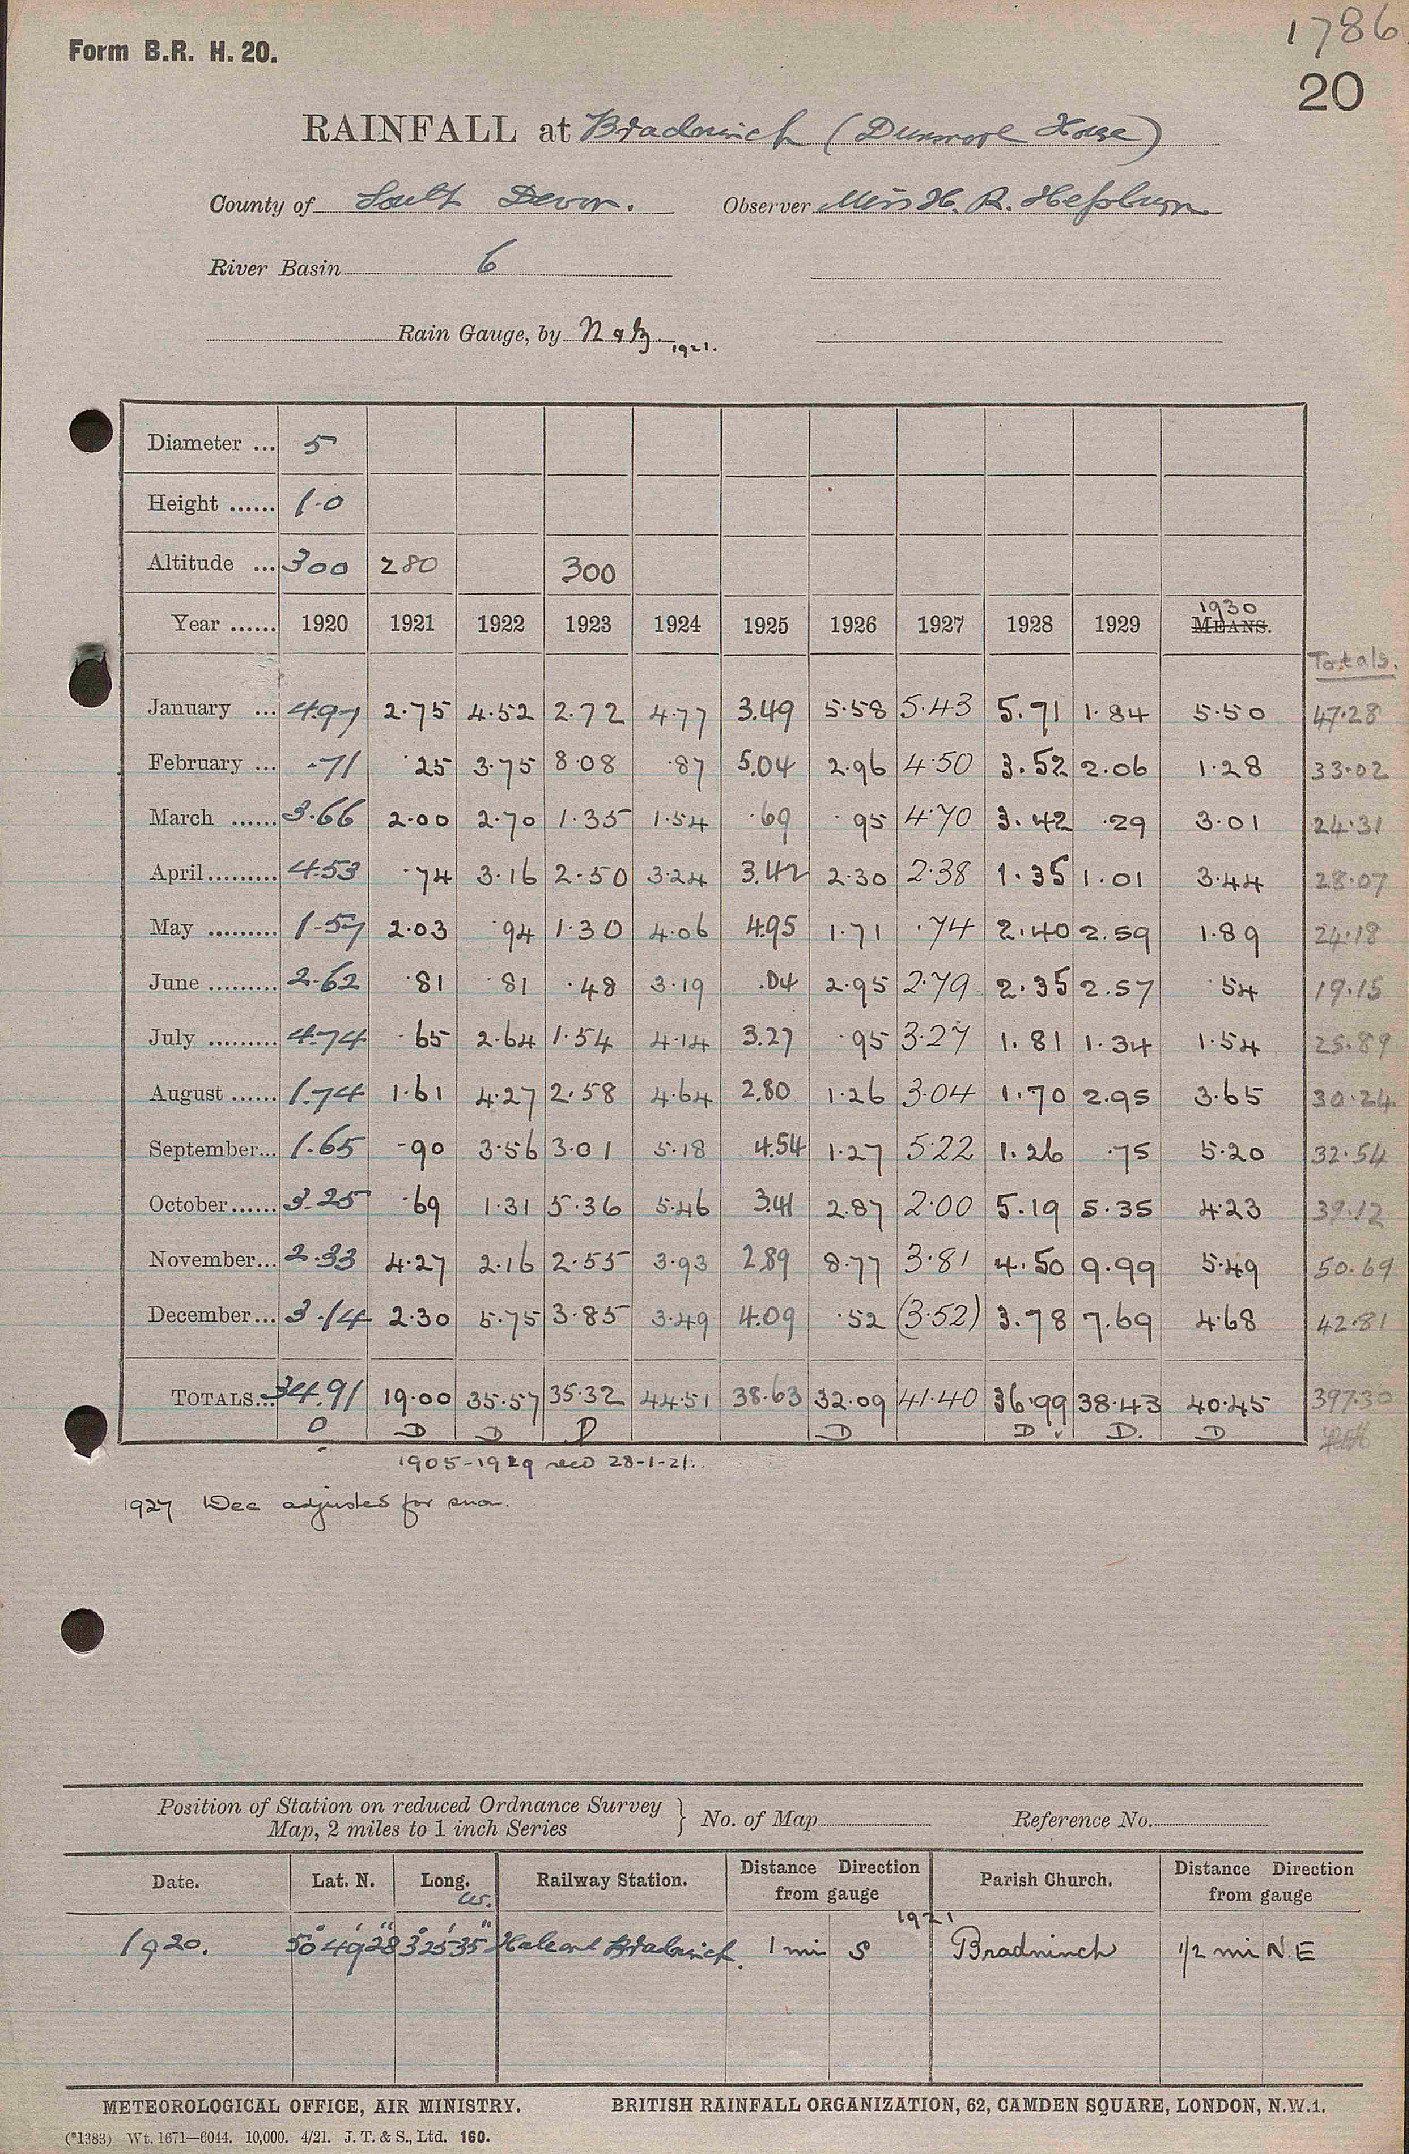 1786
Form B.R. H. 20.
20
RAINFALL at Bradninch (Dunmore House)
County of South Devon. Observer Miss H. R. Hepburn
River Basin 6
Rain Gauge, by N & Z 1921.
Diameter ... 5
Height ...... 1.0
Altitude ... 300 280 300
Year ...... 1920 1921 1922 1923 1924 1925 1926 1927 1928 1929 1930 MEANS.
Totals.
January ... 4.97 2.75 4.52 2.72 4.77 3.49 5.58 5.43 5.71 1.84 5.50 47.28
February ... .71 .25 3.75 8.08 .87 5.04 2.96 4.50 3.52 2.06 1.28 33.02
March ...... 3.66 2.00 2.70 1.35 1.54 .69 .95 4.70 3.42 .29 3.01 24.31
April......... 4.53 .74 3.16 2.50 3.24 3.42 2.30 2.38 1.35 1.01 3.44 28.07
May ......... 1.57 2.03 .94 1.30 4.06 4.95 1.71 .74 2.40 2.59 1.89 24.18
June ......... 2.62 .81 .81 .48 3.19 .04 2.95 2.79 2.35 2.57 .54 19.15
July ......... 4.74 .65 2.64 1.54 4.14 3.27 .95 3.27 1.81 1.34 1.54 25.89
August ...... 1.74 1.61 4.27 2.58 4.64 2.80 1.26 3.04 1.70 2.95 3.65 30.24
September... 1.65 .90 3.56 3.01 5.18 4.54 1.27 5.22 1.26 .75 5.20 32.54
October...... 3.25 .69 1.31 5.36 5.46 3.41 2.87 2.00 5.19 5.35 4.23 39.12
November... 2.33 4.27 2.16 2.55 3.93 2.89 8.77 3.81 4.50 9.99 5.49 50.69
December... 3.14 2.30 5.75 3.85 3.49 4.09 .52 (3.52) 3.78 7.69 4.68 42.81
TOTALS... 34.91 19.00 35.57 35.32 44.51 38.63 32.09 41.40 36.99 38.43 40.45 397.30
D D D D D D D D
1905-1919 recd 28-1-21.
1927 Dec adjusted for snow.
Position of Station on reduced Ordnance Survey Map, 2 miles to 1 inch Series } No. of Map Reference No.
Date. Lat. N. Long. W. Railway Station. Distance Direction from gauge Parish Church. Distance Direction from gauge
1921
1920. 50° 49' 28" 3° 25' 35" Hele and Bradninch. 1 mi S Bradninch 1/2 mi N E
METEOROLOGICAL OFFICE, AIR MINISTRY. BRITISH RAINFALL ORGANIZATION, 62, CAMDEN SQUARE, LONDON, N.W.1.
(*1383) Wt. 1671—6044. 10,000. 4/21. J. T. & S., Ltd. 160.